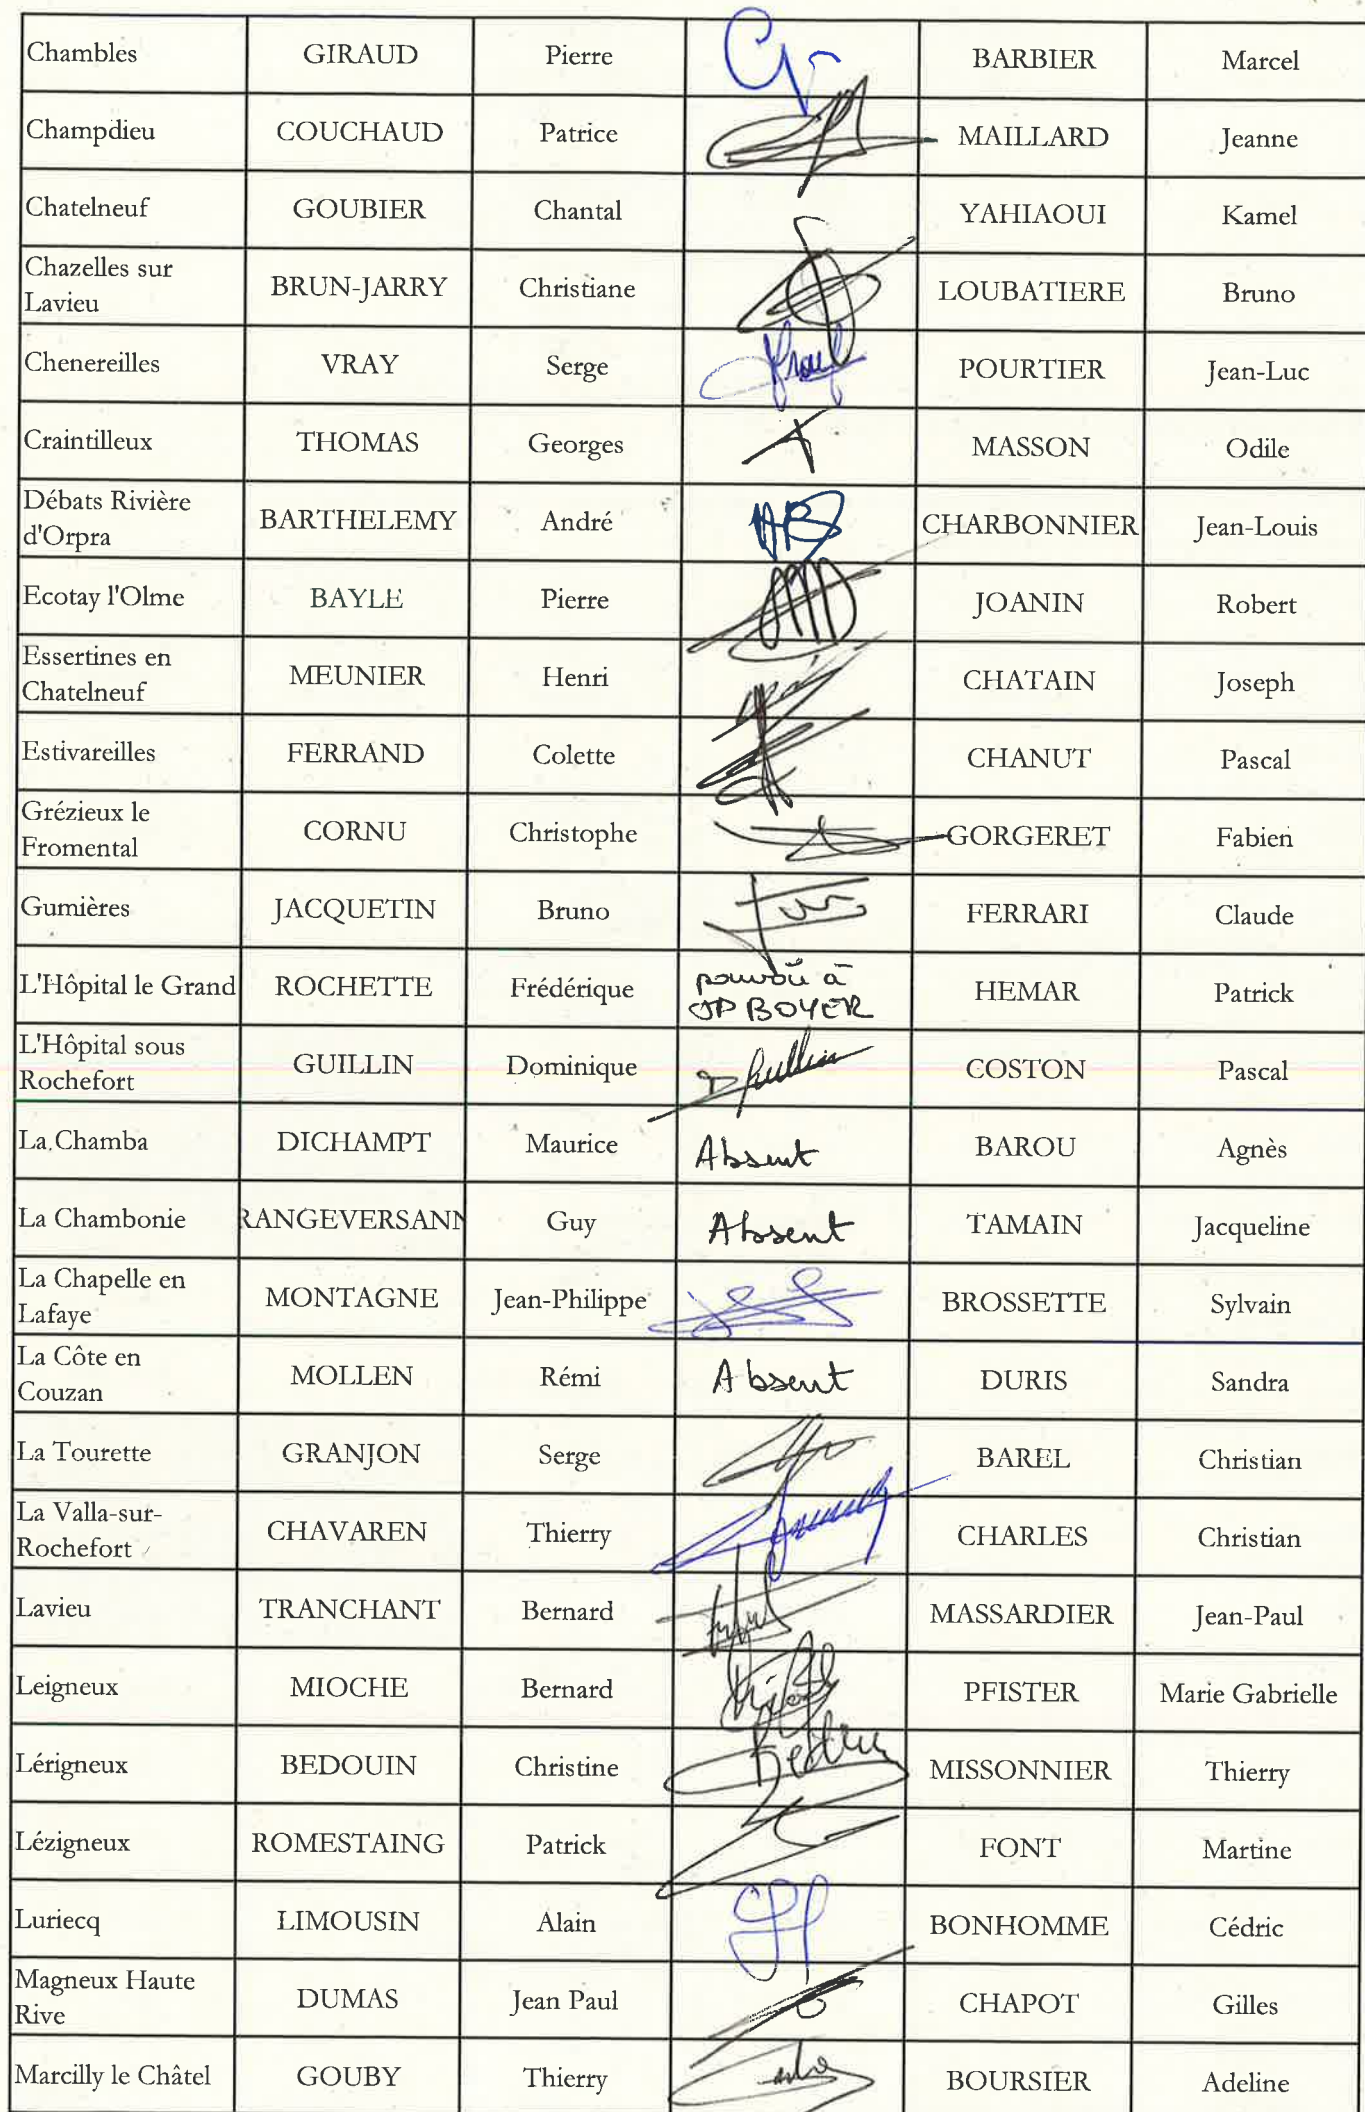 Chambles GIRAUD Pierre BARBIER Marcel
Champdieu COUCHAUD Patrice MAILLARD Jeanne
Chatelneuf GOUBIER Chantal YAHIAOUI Kamel
Chazelles sur
Lavieu BRUN-JARRY Christiane LOUBATIERE Bruno
Chenereilles VRAY Serge POURTIER Jean-Luc
Craintilleux THOMAS Georges MASSON Odile
Débats Rivière
d'Orpra BARTHELEMY André CHARBONNIER Jean-Louis
Ecotay l'Olme BAYLE Pierre JOANIN Robert
Essertines en
Chatelneuf MEUNIER Henri CHATAIN Joseph
Estivareilles FERRAND Colette CHANUT Pascal
Grézieux le
Fromental CORNU Christophe GORGERET Fabien
Gumières JACQUETIN Bruno FERRARI Claude
L'Hôpital le Grand ROCHETTE Frédérique pouvoir à
JP BOYER HEMAR Patrick
L'Hôpital sous
Rochefort GUILLIN Dominique COSTON Pascal
La Chamba DICHAMPT Maurice Absent BAROU Agnès
La Chambonie RANGEVERSANN Guy Absent TAMAIN Jacqueline
La Chapelle en
Lafaye MONTAGNE Jean-Philippe BROSSETTE Sylvain
La Côte en
Couzan MOLLEN Rémi Absent DURIS Sandra
La Tourette GRANJON Serge BAREL Christian
La Valla-sur-
Rochefort CHAVAREN Thierry CHARLES Christian
Lavieu TRANCHANT Bernard MASSARDIER Jean-Paul
Leigneux MIOCHE Bernard PFISTER Marie Gabrielle
Lérigneux BEDOUIN Christine MISSONNIER Thierry
Lézigneux ROMESTAING Patrick FONT Martine
Luriecq LIMOUSIN Alain BONHOMME Cédric
Magneux Haute
Rive DUMAS Jean Paul CHAPOT Gilles
Marcilly le Châtel GOUBY Thierry BOURSIER Adeline